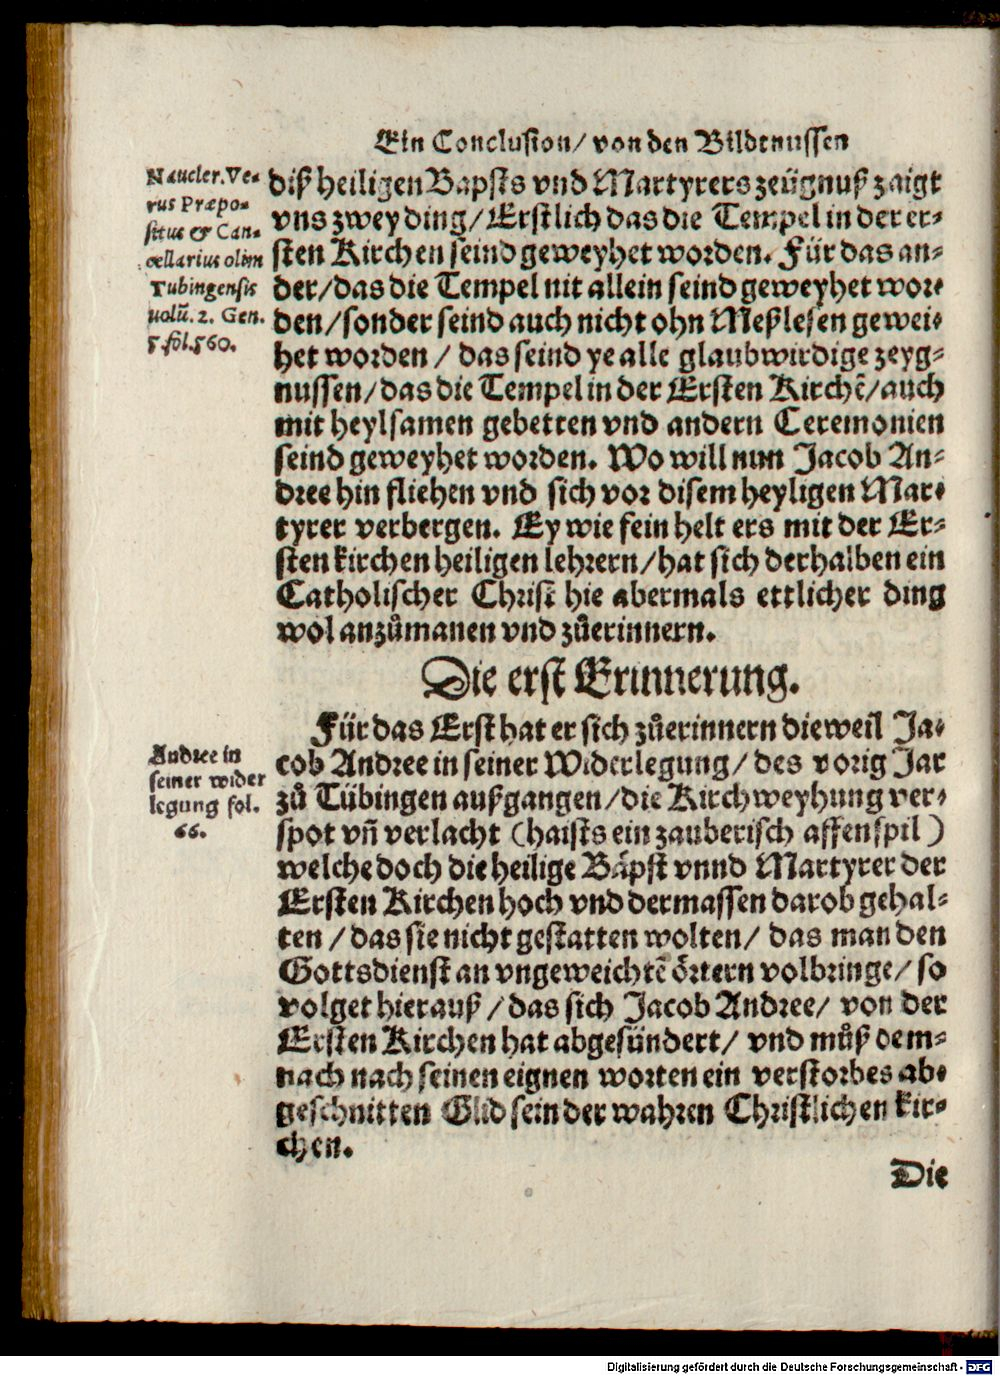 Ein Conclusion/ von den Bildtnussen
Naucler. Ve-
rus Præpo-
situs & Can-
cellarius olim
Tubingensis
uolũ. 2. Gen.
5. fol. 560.
diß heiligen Bapsts vnd Martyrers zeügnuß zaigt
vns zwey ding/ Erstlich das die Tempel in der er-
sten Kirchen seind geweyhet worden. Für das an-
der/ das die Tempel nit allein seind geweyhet wor-
den/ sonder seind auch nicht ohn Meßlesen gewei-
het worden / das seind ye alle glaubwirdige zeyg-
nussen/ das die Tempel in der Ersten Kirchẽ/ auch
mit heylsamen gebetten vnd andern Ceremonien
seind geweyhet worden. Wo will nun Jacob An-
dree hin fliehen vnd sich vor disem heyligen Mar-
tyrer verbergen. Ey wie fein helt ers mit der Er-
sten kirchen heiligen lehrern/ hat sich derhalben ein
Catholischer Christ hie abermals ettlicher ding
wol anzůmanen vnd zůerinnern.
Die erst Erinnerung.
Andree in
seiner wider
legung fol.
66.
Für das Erst hat er sich zůerinnern dieweil Ja-
cob Andree in seiner Widerlegung/ des vorig Jar
zů Tübingen außgangen/ die Kirchweyhung ver-
spot vñ verlacht (haists ein zauberisch affenspil)
welche doch die heilige Bäpst vnnd Martyrer der
Ersten Kirchen hoch vnd dermassen darob gehal-
ten / das sie nicht gestatten wolten/ das man den
Gottsdienst an vngeweichtẽ örtern volbringe/ so
volget hierauß / das sich Jacob Andree/ von der
Ersten Kirchen hat abgesündert/ vnd můß dem-
nach nach seinen eignen worten ein verstorbes ab-
geschnitten Glid sein der wahren Christlichen kir-
chen.
Die
Digitalisierung gefördert durch die Deutsche Forschungsgemeinschaft - DFG